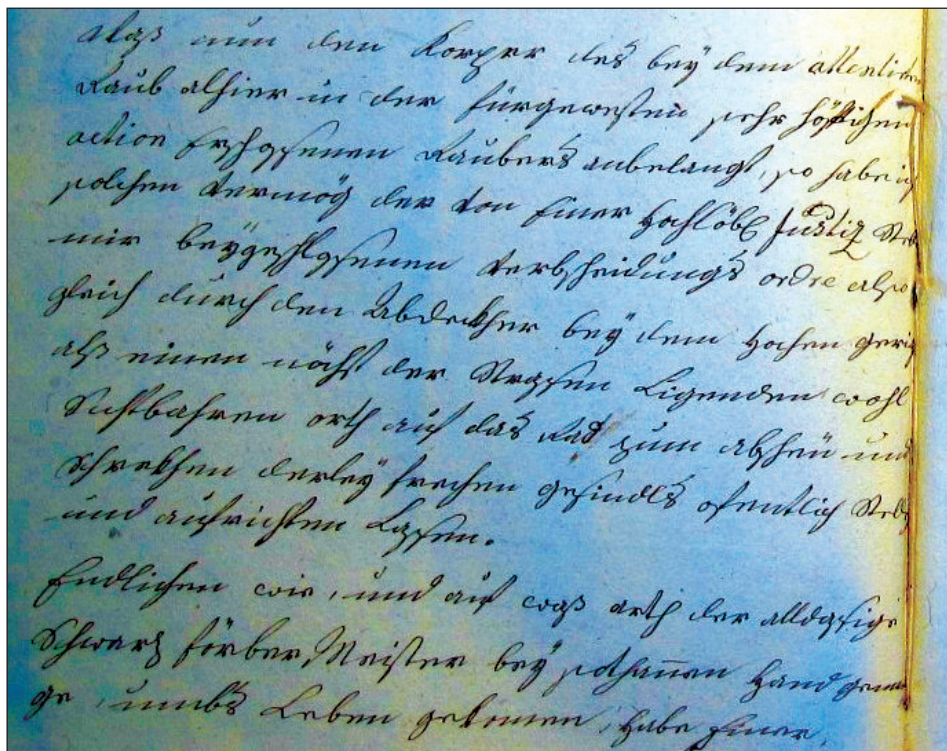 Waß nun den Körper des bey dem attentirten
Raub alhier in der fürgewesten sehr höftigen
action Erschossenen Raubers anbelangt, so habe ich
solchen Vermög der von Einer Hochlöbl Justiz
mir beygeschlossenen Verbscheidungs ordre also
gleich durch den Abdeckher bey dem Hochen gericht
alß einen nächst der Strassen Ligenden wohl
Sichtbahren orth auf das Rad zum abscheü und
Schrekhen derley frechen gesindls ofentlich
und aufrichten Lassen.
Endlichen wie, und auf waß arth der alldasige
Schwarz färber Meister bey sothannen Hand gemen
ge, umbs Leben gekomen, habe Einer